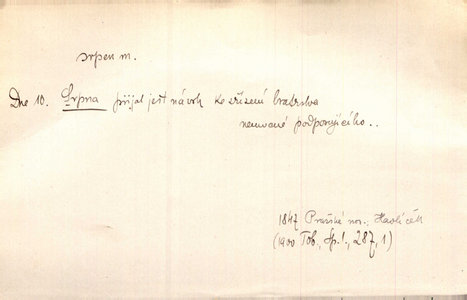 srpen m.
Dne 10. Srpna přijat jest návrh ke zřízení bratrstva
nemocné podporujícího..
1847 Pražské nov., Havlíček
(1900 Tob., Sp. I., 287, 1)